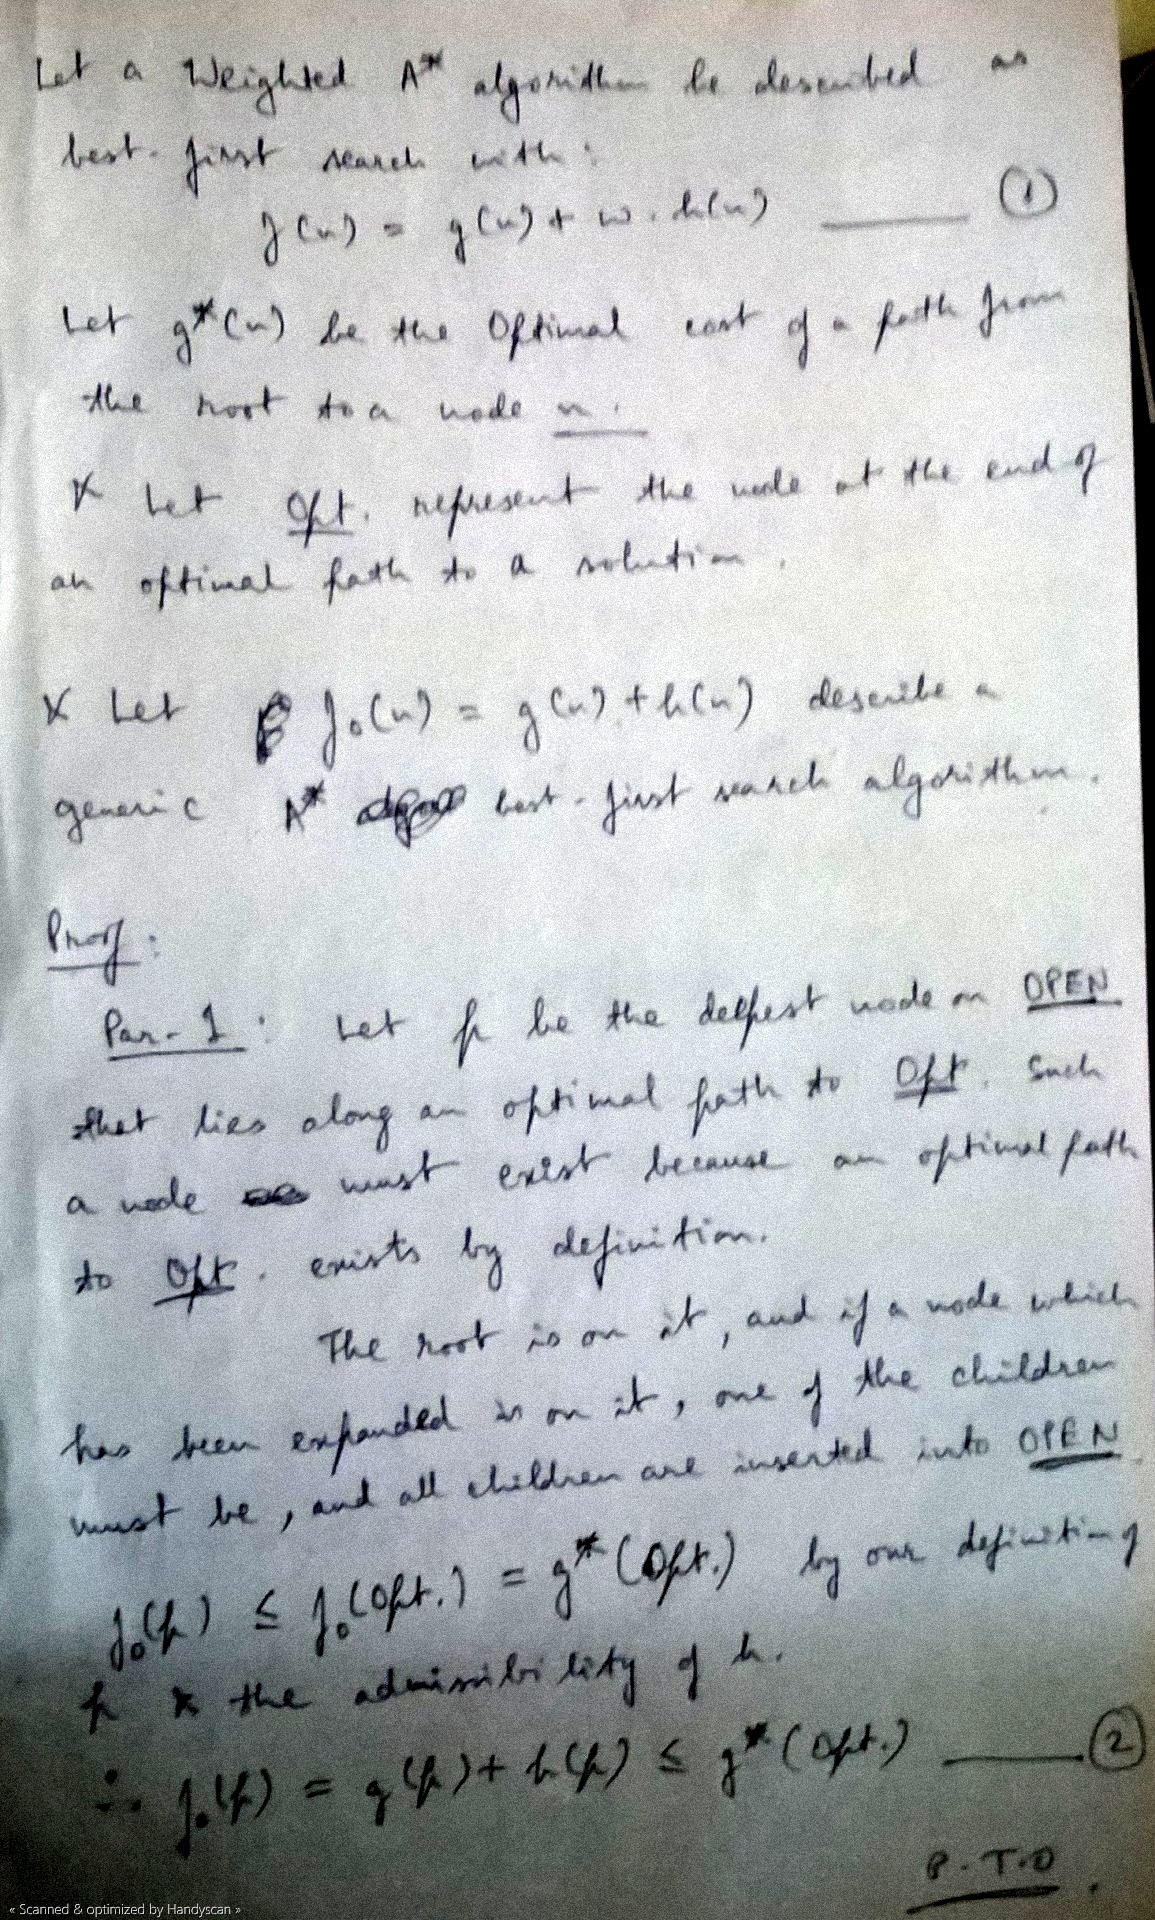 Let a Weighted A* algorithm be described as
best-first search with:
f(n) = g(n) + w.h(n) ——— ①
Let g*(n) be the Optimal cost of a path from
the root to a node n.
* Let Opt. represent the node at the end of
an optimal path to a solution.
* Let f₀(n) = g(n) + h(n) describe a
generic A* best-first search algorithm.
Proof:
Par-1: Let p be the deepest node on OPEN
that lies along an optimal path to Opt. Such
a node must exist because an optimal path
to Opt. exists by definition.
The root is on it, and if a node which
has been expanded is on it, one of the children
must be, and all children are inserted into OPEN.
f₀(p) ≤ f₀(Opt.) = g*(Opt.) by our definition of
p & the admissibility of h.
∴ f₀(p) = g(p) + h(p) ≤ g*(Opt.) ——— ②
P.T.O.
« Scanned & optimized by Handyscan »